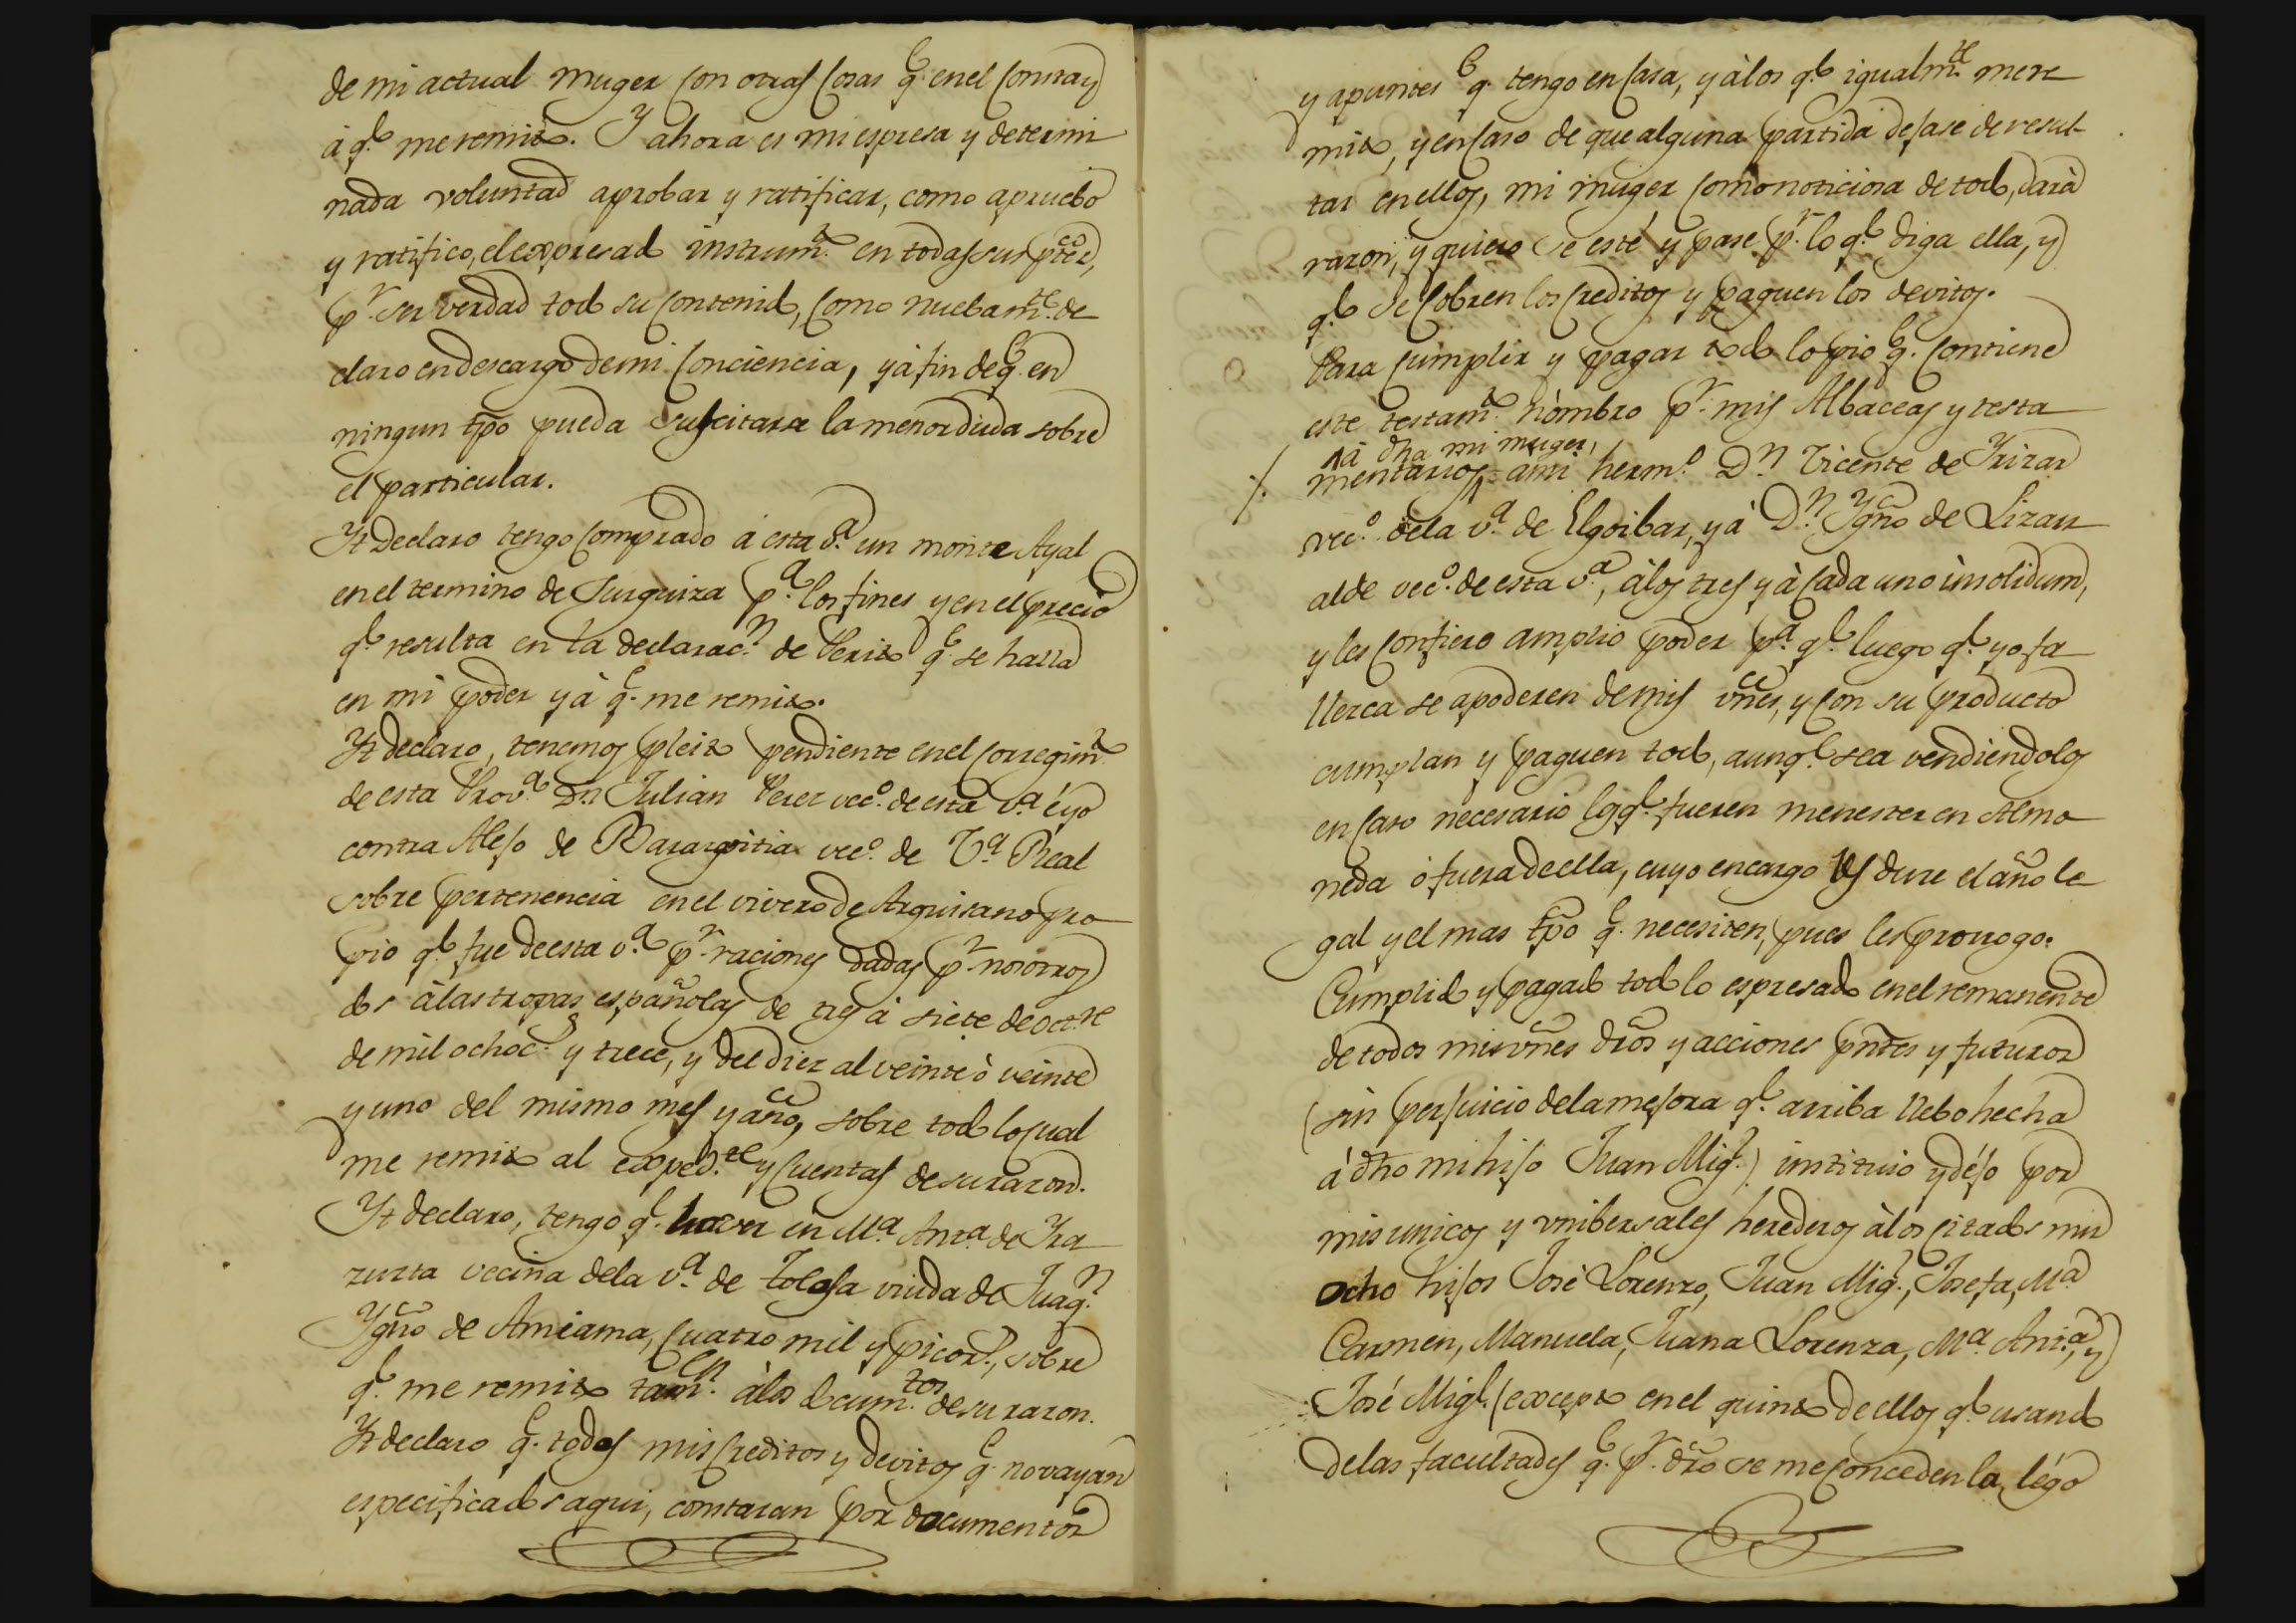 de mi actual muger con otras cosas q.e en el constan
à q.e me remito. Y ahora es mi espresa y determi
nada voluntad aprobar y ratificar, como apruebo
y ratifico, el expresado instrum.to en todas sus ptes,
p.r ser verdad todo su contenido, como nuebam.te de
claro en descargo de mi conciencia, y à fin de q.e en
ningun tpo pueda suscitarse la menor duda sobre
el particular.
Yt declaro tengo comprado à esta v.a un monte Ayal
en el termino de p.a los fines y en el precio
q.e resulta en la declarac.n de Perito q.e se halla
en mi poder y à q.e me remito.
Yt declaro, tenemos pleito pendiente en el corregim.to
de esta Prov.a Dn Julian Perez vec.o de esta v.a é yo
contra Alejo de vec.o de V.a Real
sobre pertenencia en el vivero de Arguisano pro
pio q.e fue de esta v.a p.r raciones dadas p.r nosotros
dos à las tropas españolas de tres à siete de Oct.re
de mil ochoc.s y trece, y del diez al veinte ò veinte
y uno del mismo mes y año, sobre todo lo cual
me remito al exped.te y cuentas de su razon.
Yt declaro, tengo q.e haver en M.a Ant.a de Yra
zuzta vecina de la v.a de Tolosa viuda de Juaq.n
Ygn.o de Amiama, cuatro mil y pico r.s, sobre
q.e me remito tam.en à los docum.tos de su razon.
Yt declaro q.e todos mis creditos y devitos q.e no vayan
especificados aqui, constaran por documentos
y apuntes q.e tengo en casa, y à los q.e igualm.te me re
mito, y en caso de que alguna partida dejase de resul
tar en ellos, mi muger como noticiosa de todo, darà
razon, y quiero se esté y pase p.r lo q.e diga ella, y
q.e se cobren los creditos y paguen los devitos.
Para cumplir y pagar todo lo pio q.e contiene
este testam.to nombro p.r mis Albaceas y testa
à dha mi muger,
mentarios à mi herm.o D.n Vicente de Yrizar
vec.o de la v.a de Elgoibar, y à D.n Ygn.o de Lizarr
alde vec.o de esta v.a, à los tres y à cada uno insolidum,
y les confiero amplio poder p.a q.e luego q.e yo fa
llezca se apoderen de mis vnes, y con su producto
cumplan y paguen todo, aunq.e sea vendiendolos
en caso necesario los q.e fueren menester en Almo
neda ò fuera de ella, cuyo encargo les dure el año le
gal y el mas tpo q.e necesiten, pues les prorrogo.
Cumplido y pagado todo lo espresado en el remanente
de todos mis vnes dros y acciones pntes y futuros
(sin perjuicio de la mejora q.e arriba llebo hecha
à dho mi hijo Juan Mig.l) instituio y déjo por
mis unicos y vnibersales herederos à los citados mis
ocho hijos José Lorenzo, Juan Mig.l, Josefa, M.a
Carmen, Manuela, Juana Lorenza, M.a Ant.a, y
José Mig.l (excepto en el quinto de ellos q.e usando
de las facultades q.e p.r dro se me conceden la légo